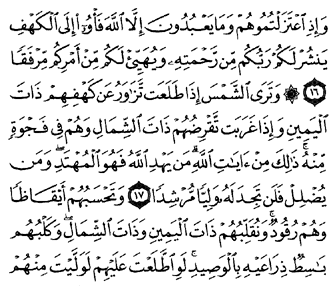 وَإِذِ ٱعْتَزَلْتُمُوهُمْ وَمَا يَعْبُدُونَ إِلَّا ٱللَّهَ فَأْوُۥٓا۟ إِلَى ٱلْكَهْفِ
يَنشُرْ لَكُمْ رَبُّكُم مِّن رَّحْمَتِهِۦ وَيُهَيِّئْ لَكُم مِّنْ أَمْرِكُم مِّرْفَقًا
﴿١٦﴾ ۞ وَتَرَى ٱلشَّمْسَ إِذَا طَلَعَت تَّزَٰوَرُ عَن كَهْفِهِمْ ذَاتَ
ٱلْيَمِينِ وَإِذَا غَرَبَت تَّقْرِضُهُمْ ذَاتَ ٱلشِّمَالِ وَهُمْ فِى فَجْوَةٍ
مِّنْهُ ۚ ذَٰلِكَ مِنْ ءَايَٰتِ ٱللَّهِ ۗ مَن يَهْدِ ٱللَّهُ فَهُوَ ٱلْمُهْتَدِ ۖ وَمَن
يُضْلِلْ فَلَن تَجِدَ لَهُۥ وَلِيًّا مُّرْشِدًا ﴿١٧﴾ وَتَحْسَبُهُمْ أَيْقَاظًا
وَهُمْ رُقُودٌ ۚ وَنُقَلِّبُهُمْ ذَاتَ ٱلْيَمِينِ وَذَاتَ ٱلشِّمَالِ ۖ وَكَلْبُهُم
بَٰسِطٌ ذِرَاعَيْهِ بِٱلْوَصِيدِ ۚ لَوِ ٱطَّلَعْتَ عَلَيْهِمْ لَوَلَّيْتَ مِنْهُمْ